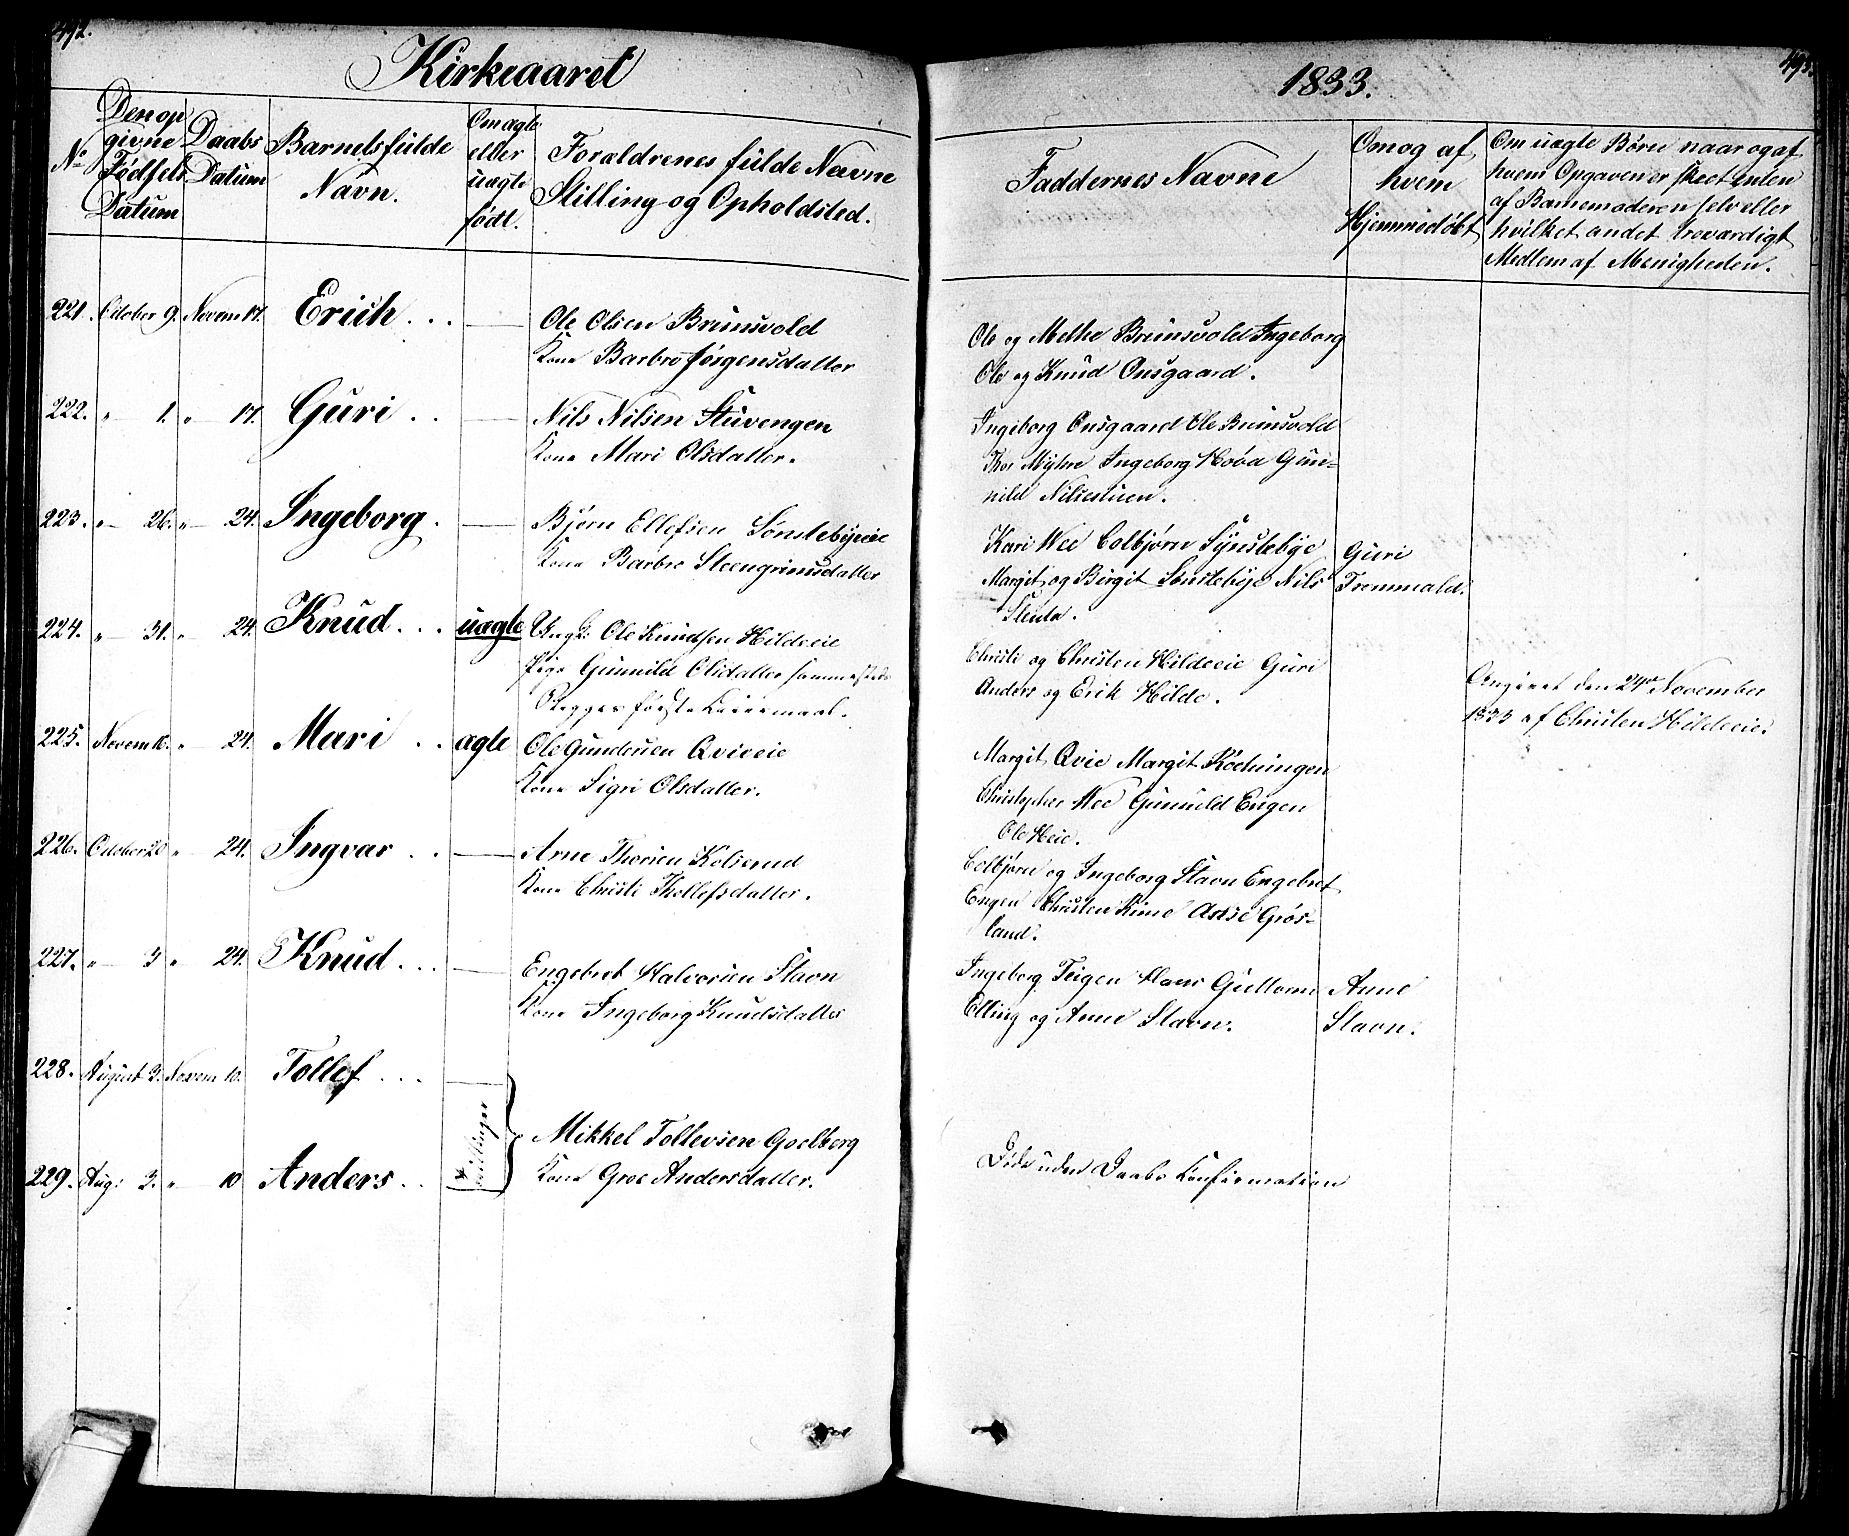 492.
Kirkeaaret
No
Den op
givne
Fødsels
Datum
Daabs
Datum
Barnets fulde
Navn.
Om ægte
eller
uægte
født.
Forældrenes fulde Navne
Stilling og Opholdsted.
221. October 9. Novem 17. Erich . . . —
Ole Olsen Brunsvold
Kone Barbro Jørgensdatter
222. " 1. " 17. Guri . . —
Nils Nilsen Stuvengen
Kone Mari Olsdatter.
223. " 26. " 24. Ingeborg . —
Bjørn Ellefsen Sønstebyeie
Kone Barbro Steengrimsdatter
224. " 31. " 24. Knud . . . uægte
Ungk: Ole Knudsen Hildeeie
Pige Gunnild Olsdatter sammesteds
Begges første Leiermaal.
225. Novem 10. " 24. Mari . . ægte
Ole Gundersen Qvieeie
Kone Sigri Olsdatter.
226. October 20 " 24. Ingvar . . —
Arne Thorsen Kolsrud
Kone Christi Thollefsdatter.
227. " 3 " 24. Knud . . . —
Engebret Halvorsen Stavn
Kone Ingeborg Knudsdatter
228. August 3. Novem 10. Tollef . . . —
Tvillinger
Mikkel Tollevsen Goelberg
Kone Groe Andersdatter.
229. Aug: 3. " 10 Anders . .
493.
1833.
Faddernes Navne
Om og af
hvem
Hjemmedøbt
Om uægte Børn naar og af
hvem Opgaven er skeet enten
af Barnemoderen selv eller
hvilket andet troværdigt
Medlem af Menigheden.
Ole og Methe Brunsvold Ingeborg
Ole og Knud Onsgaard.
Ingeborg Onsgaard Ole Brunsvold
Thor Myhre Ingeborg Hova Gun=
nild Nilsestuen.
Kari Wee Colbjørn Synstebye
Margit og Birgit Sønstebye Nils
Sleuta.
Guri
Tremmald.
Christi og Christen Hildeeie Guri
Anders og Erik Hilde.
Angivet den 24de November
1833 af Christen Hildeeie.
Margit Qvie Margit
Christopher Wee Gunnild Engen
Ole Heie.
Colbjørn og Ingeborg Stavn Engebret
Engen Christen Rime Aase Grøs=
land.
Ingeborg Teigen Hans Gulhorn
Elling og Anne Stavn.
Anne
Stavn.
Døde uden Daabs Confirmation